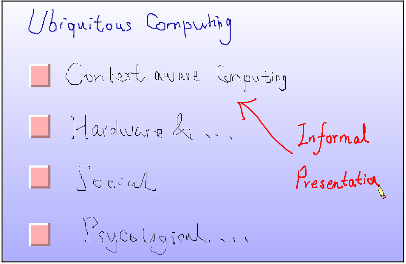 Ubiquitous Computing
Context aware Computing
Hardware & ...
Social
Psycological ...
Informal
Presentation